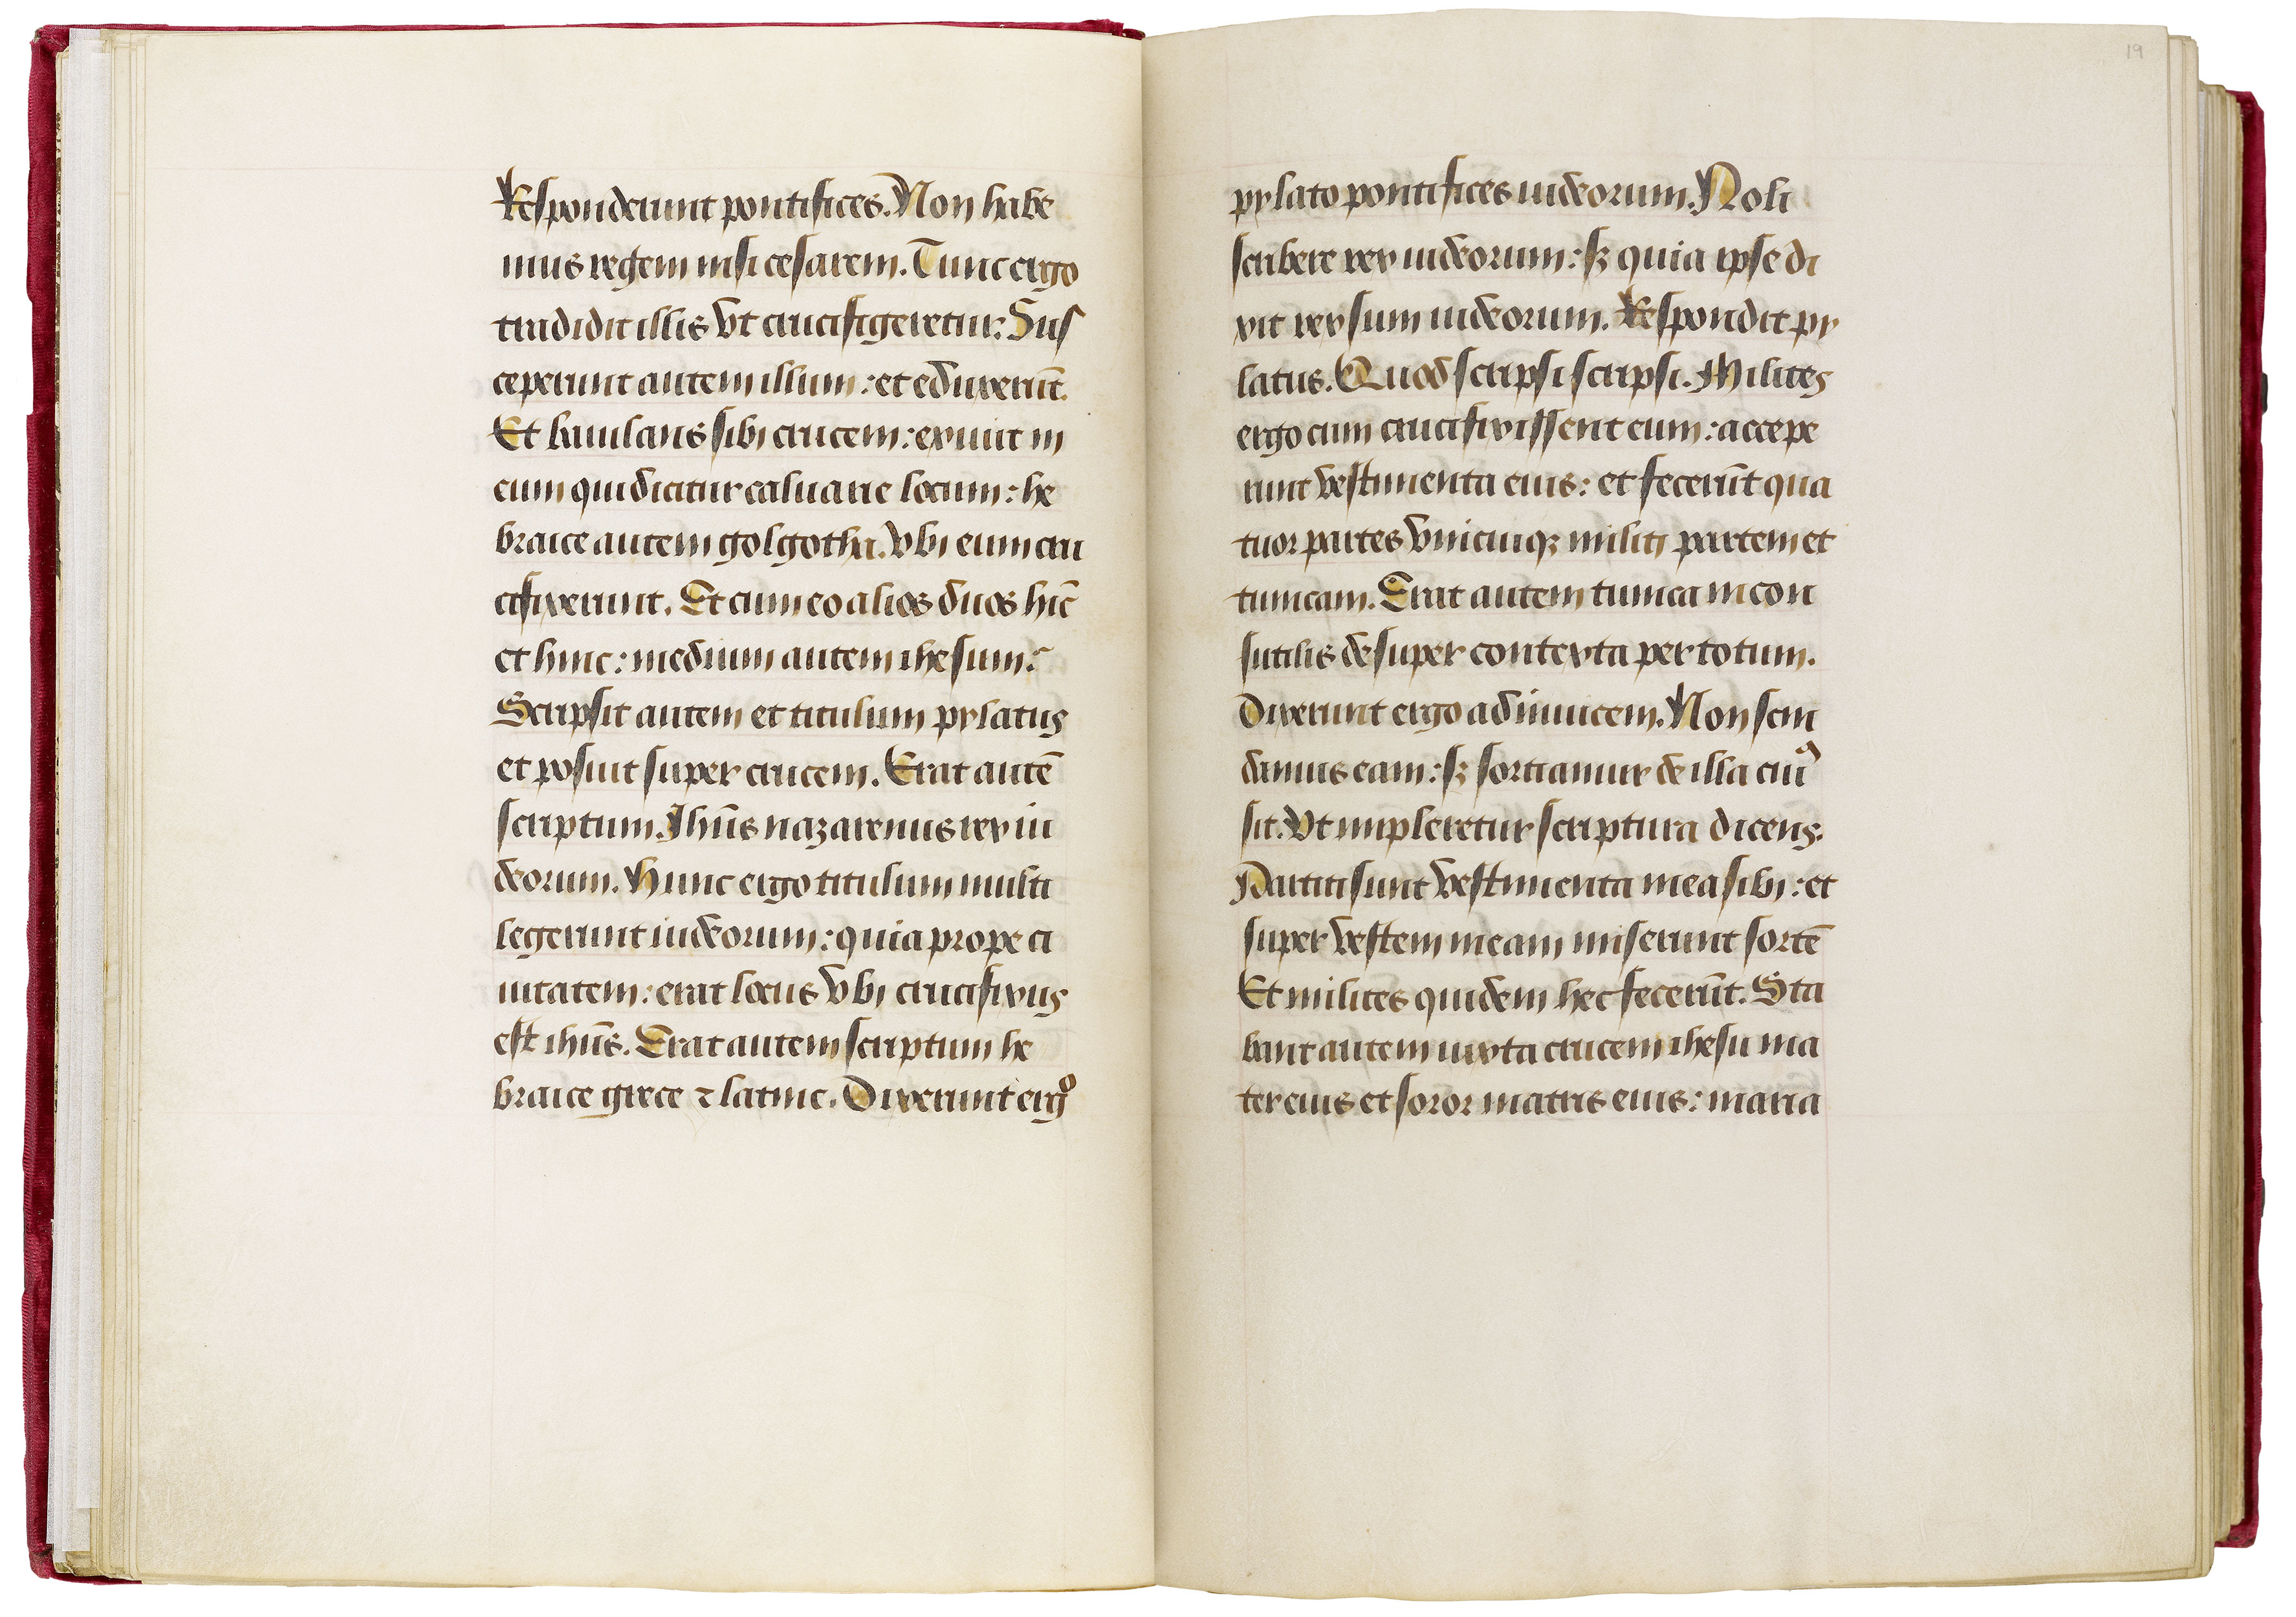 Responderunt pontifices. Non habe
mus regem nisi cesarem. Tunc ergo
tradidit illis vt crucifigeretur: Sus
ceperunt autem illum: et eduxerūt.
Et baiulans sibi crucem: exiuit in
eum qui dicitur caluarie locum: he
braice autem golgotha. vbi eum cru
cifixerunt. Et cum eo alios duos hīc
et hinc: medium autem ihesum:
Scripsit autem et titulum pylatus
et posuit super crucem. Erat autē
scriptum. Jhūs nazarenus rex iu
deorum. Hunc ergo titulum multi
legerunt iudeorum: quia prope ci
uitatem: erat locus vbi crucifixus
est ihūs. Erat autem scriptum he
braice grece ⁊ latine. Dixerunt ergo
19
pylato pontifices iudeorum. Noli
scribere rex iudeorum: sꝫ quia ipse di
xit rex sum iudeorum. Respondit py
latus. Quod scripsi scripsi. Milites
ergo cum crucifixissent eum: accepe
runt vestimenta eius: et fecerūt qua
tuor partes vnicuiqꝫ militi partem et
tunicam. Erat autem tunica incon
sutilis desuper contexta per totum.
Dixerunt ergo adinuicem. Non scin
damus eam: sꝫ sortiamur de illa cuiꝰ
sit. Vt impleretur scriptura dicens.
Partiti sunt vestimenta mea sibi: et
super vestem meam miserunt sortē
Et milites quidem hec fecerūt. Sta
bant autem iuxta crucem ihesu ma
ter eius et soror matris eius: maria